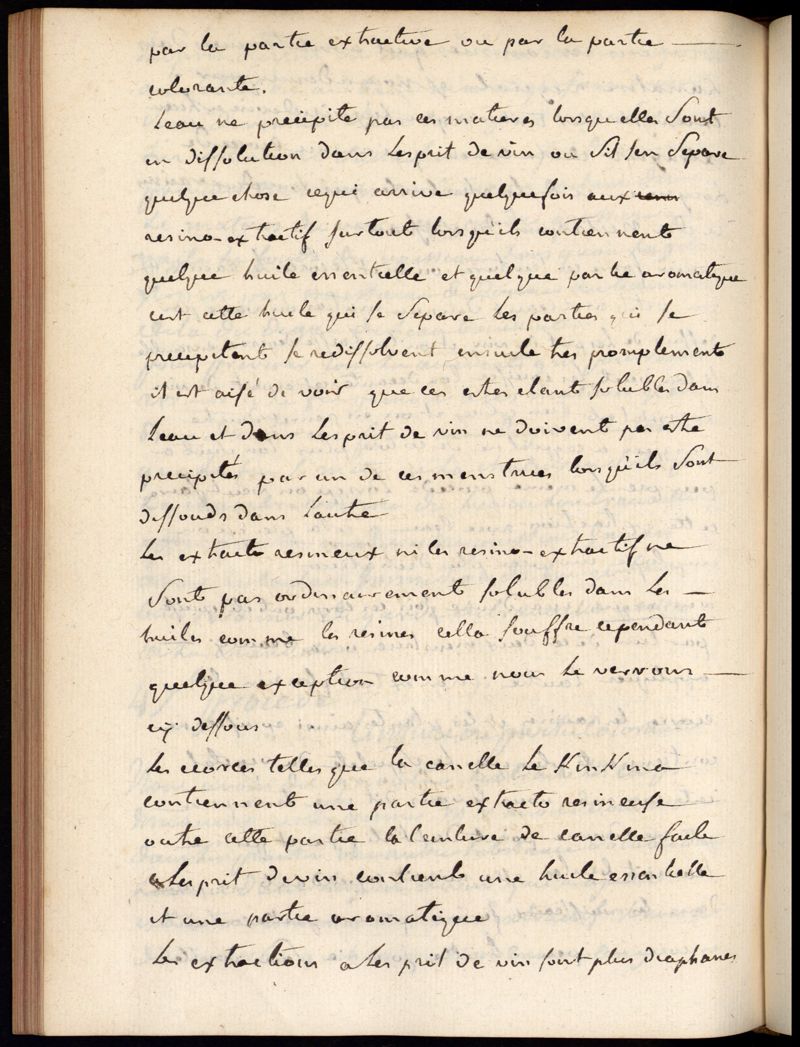 par la partie extractive ou par la partie —
colorante.
Leau ne precipite pas ces matieres lorsquelles Sont
en dissolution dans Lesprit de vin ou Sil sen Separe
quelque chose cequi arrive quelquefois aux
resino-extractif surtout lorsquils contiennent
quelque huile essentielle et quelque partie aromatique
cest cette huile qui se Separe Les parties qui se
precipitent se redissolvent ensuite tres promptement
il est aisé de voir que ces estes etant solubles dans
Leau et dans Lesprit de vin ne doivent pas estre
precipités par un de ces menstrues lorsquils Sont
dissouds dans Lautre
Les extracto resineux ni les resino-extractif ne
Sont pas ordinairement solubles dans Les —
huiles comme les resines cella souffre cependant
quelque exception comme nous Le verrons —
cy dessous
Les ecorces telles que la canelle Le KinKina
contiennent une partie extracto resineuse
outre cette partie la teinture de canelle faite
a Lesprit de vin contient une huile essentielle
et une partie aromatique
Les extractions a Lesprit de vin sont plus diaphanes